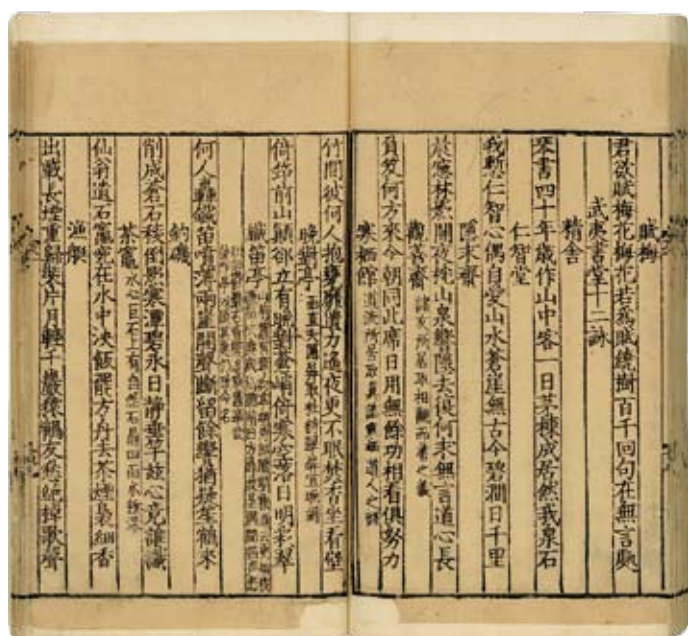 賦梅
君欲賦梅花梅花若爲賦繞樹百千回句在無言處
武夷書堂十二詠
精舍
琴書四十年幾作山中客一日茅棟成居然我泉石
仁智堂
我慙仁智心偶自愛山水蒼崖無古今碧澗日千里
隱求齋
晨窻林影開夜枕山泉響隱去復何求無言道心長
觀善齋 諸友所居取相觀而善之義
負笈何方來今朝同此席日用無餘功相看俱努力
寒栖館 道流所居取真誥道人之語
竹間彼何人抱甕靡遺力遥夜更不眠焚香坐看壁
晚對亭
倚筇前山顛卻立有晚對蒼峭倚寒空落日明彩翠
鐵笛亭
何人轟鐵笛噴薄兩崖開聲斷留餘響猶疑笙鶴來
釣磯
削成蒼石稜倒影寒潭碧永日靜垂竿兹心竟誰識
茶竈 水心巨石上有自然石竈四面水
仙翁遺石竈宛在水中央飲罷方舟去茶煙裊細香
漁艇
出載長煙重歸裝片月輕千巖猿鶴友愁絕棹歌聲